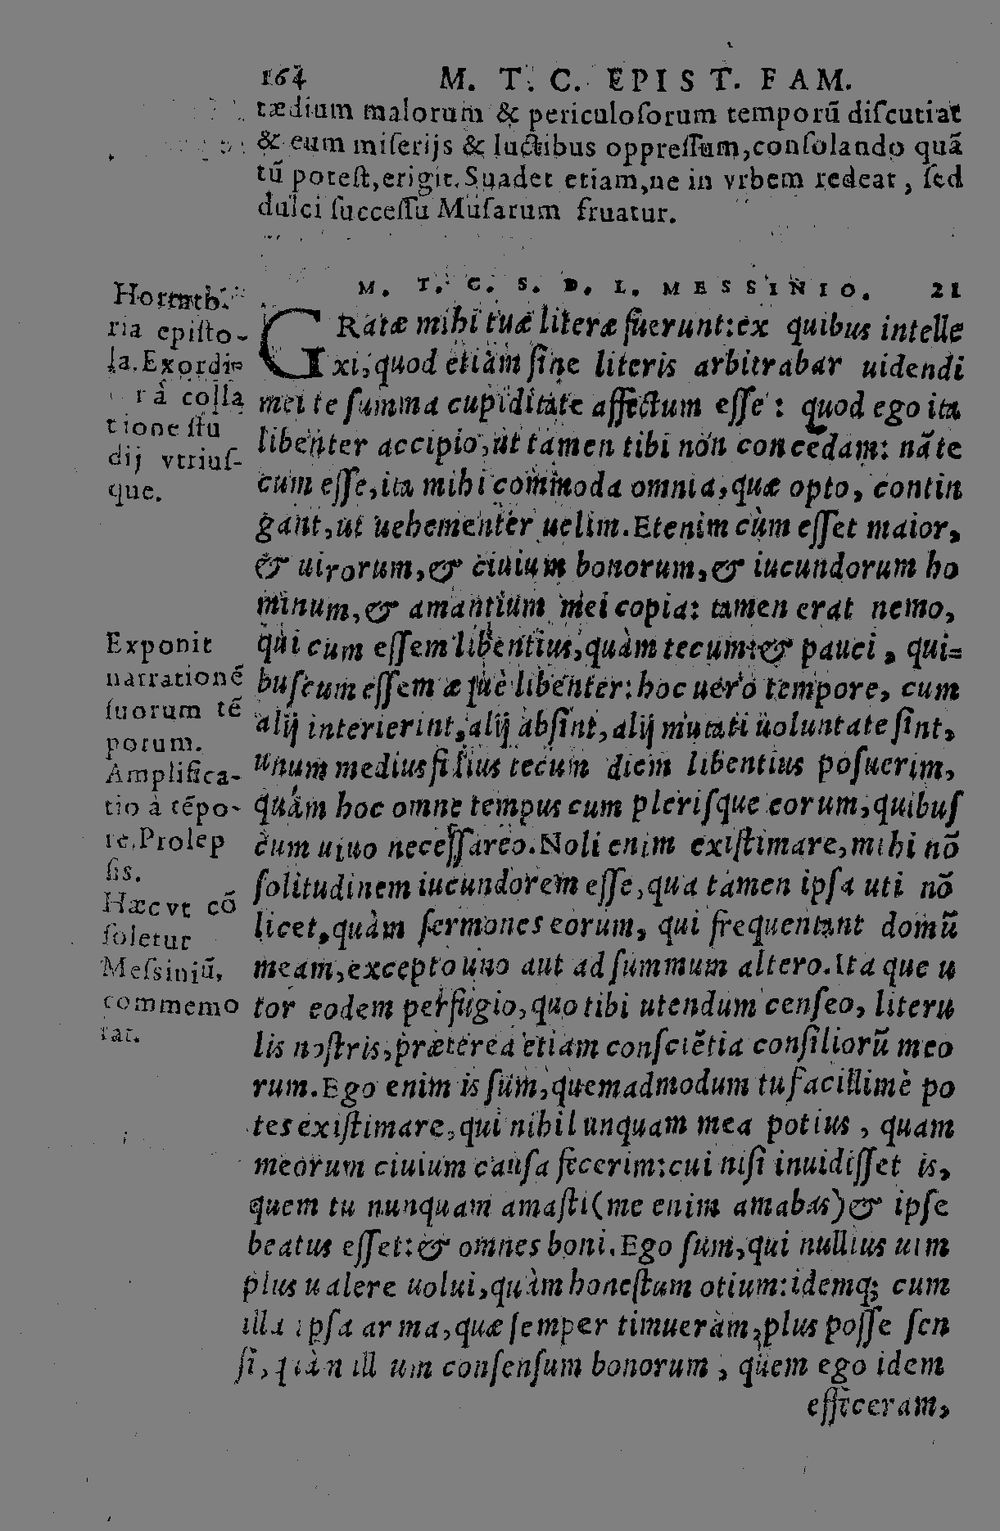 164 M. T. C. EPIST. FAM.
tædium malorum & periculosorum temporũ discutiat
& eum miserijs & luctibus oppressum, consolando quã
tũ potest, erigit. Suadet etiam, ne in vrbem redeat, sed
dulci successu Musarum fruatur.
M. T. C. S. D. L. MESSINIO. 21
GRatæ mihi tuæ literæ fuerunt: ex quibus intelle
xi, quod etiàm sine literis arbitrabar uidendi
mei te summa cupiditate affectum esse: quod ego ita
libenter accipio, ut tamen tibi non concedam: nã te
cum esse, ita mihi commoda omnia, quæ opto, contin
gant, ut uehementer uelim. Etenim cùm esset maior,
& uirorum, & ciuium bonorum, & iucundorum ho
minum, & amantium mei copia: tamen erat nemo,
qui cum essem libentius, quàm tecum: & pauci, qui=
buscum essem æ què libenter: hoc uero tempore, cum
alij interierint, alij absint, alij mutati uoluntate sint,
unum medius fi lius tecum diem libentius posuerim,
quám hoc omne tempus cum plerisque eorum, quibus
cum uiuo necessareo. Noli enim existimare, mihi nō
solitudinem iucundorem esse, qua tamen ipsa uti nō
licet, quàm sermones eorum, qui frequentant domũ
meam, excepto uno aut ad summum altero. Ita que u
tor eodem perfugio, quo tibi utendum censeo, literu
lis nostris, præterea etiam consciẽtia consiliorũ meo
rum. Ego enim is sum, quemadmodum tu facillimè po
tes existimare, qui nihil unquam mea potius, quam
meorum ciuium causa fecerim: cui nisi inuidisset is,
quem tu nunquam amasti (me enim amabas) & ipse
beatus esset: & omnes boni. Ego sum, qui nullius uim
plus ualere uolui, quàm honestum otium: idemq; cum
illa ipsa arma, quæ semper timueram, plus posse sen
si, quàn ill um consensum bonorum, quem ego idem
effeceram,
ria episto-
la. Exordi=
rã colla
tione stu
dij vtrius-
que.
Exponit
narrationẽ
suorum tẽ
porum.
Amplifica-
tio à tẽpo-
re. Prolep
sis.
Hæc vt cō
soletur
Messinjũ,
commemo
rat.